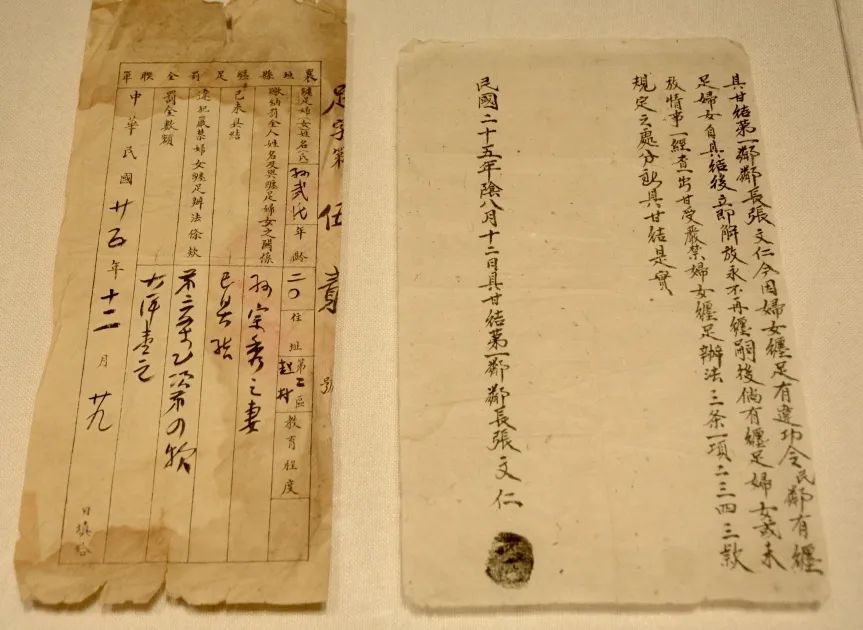 具甘結第一鄰鄰長張文仁今因婦女纏足有違功令民鄰有纏
足婦女自具結後立即解放永不再纏嗣後倘有纏足婦女或未
放情事一經查出甘受嚴禁婦女纏足辦法三条一項二三四三款
規定之處分具甘結是實
民國二十五年陰八月十二日具甘結第一鄰鄰長張文仁
襄垣縣纏足罰金聯單
足字第伍號
纏足婦女姓名(氏)孫武氏年齡二〇住址第二區趙村教育程度
繳納罰金人姓名及與纏足婦女之關係孫宗秀之妻
已未具結已具結
違犯嚴禁婦女纏足辦法條款第三条乙項第四款
罰金數額大洋壹元
中華民國廿五年十二月廿九日填給